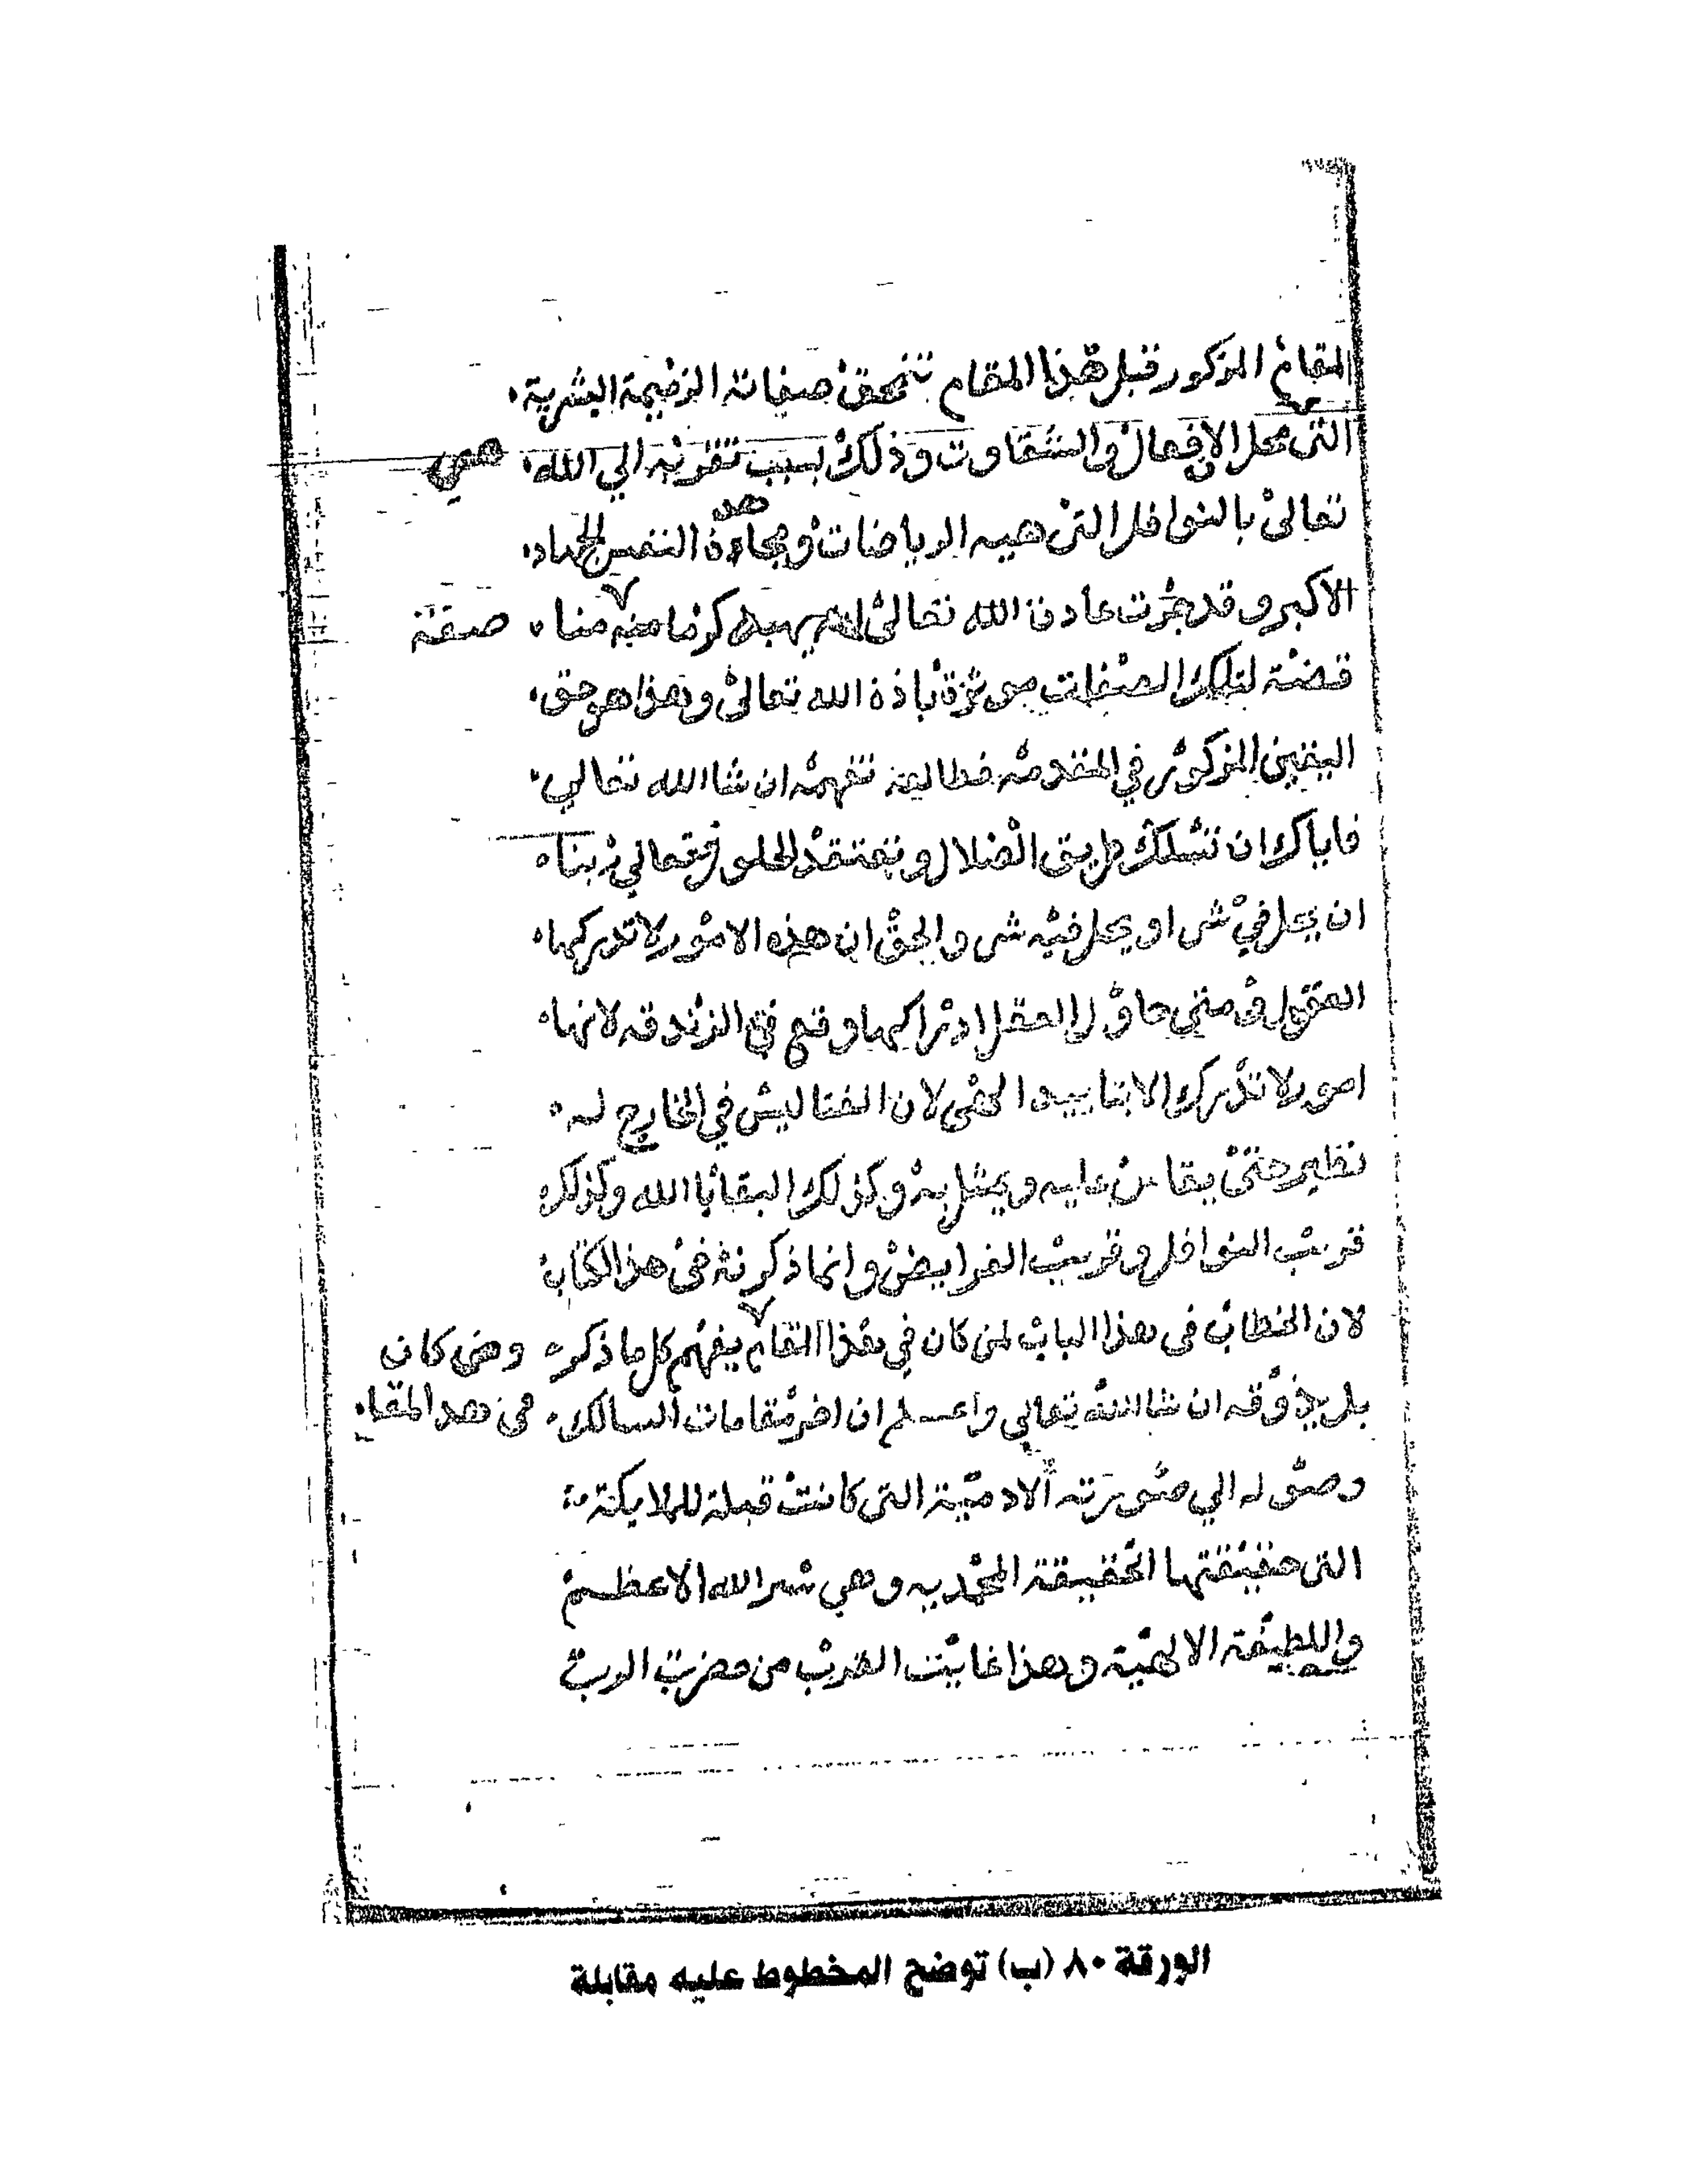 المقام المذكور قبل هذا المقام تنمحق صفاته الذميمة البشرية
التى محل الانفعال والشقاوت وذلك بسبب تقربه الي الله هي
تعالى بالنوافل التى هيه الرياضات ومجاهدة النفس الجهاد
الاكبر وقد جرت عادت الله تعالى يهبه كرما منه منا صفة
لتلك الصفات موثرة باذن الله تعالى وهذا هو حق
اليقين المذكور في المقدمه فطالعه تفهمه ان شا الله تعالي
فاياك ان تسلك طريق الضلال وتعتقد الحلول تعالي ربنا
ان يحل في شى او يحل فيه شى والحق ان هذه الامور لا تدركها
العقول ومتى حاول العقل ادراكها وقع في الزندقه لانها
امور لا تدرك الا بتاييد الهى لان الفنا ليس في الخارج له
نظير حتى يقاس عليه ويمثل به وكذلك البقا بالله وكذلك
قرب النوافل وقرب الفرايض وانما ذكرته في هذا الكتاب
لان الخطاب فى هذا الباب لمن كان في هذا المقام يفهم كل ما ذكر ومن كان
بل يذوقه ان شا الله تعالى واعلم ان اخر مقامات السالك فى هدا المقام
وصوله الي صورته الادمية التى كانت قبلة للملايكة
التى حقيقتها الحقيقة المحمديه وهي سر الله الاعظم
واللطيفة الالهية وهذا غايت القرب من حضرت الرب
الورقة ٨٠ (ب) توضح المخطوط عليه مقابلة